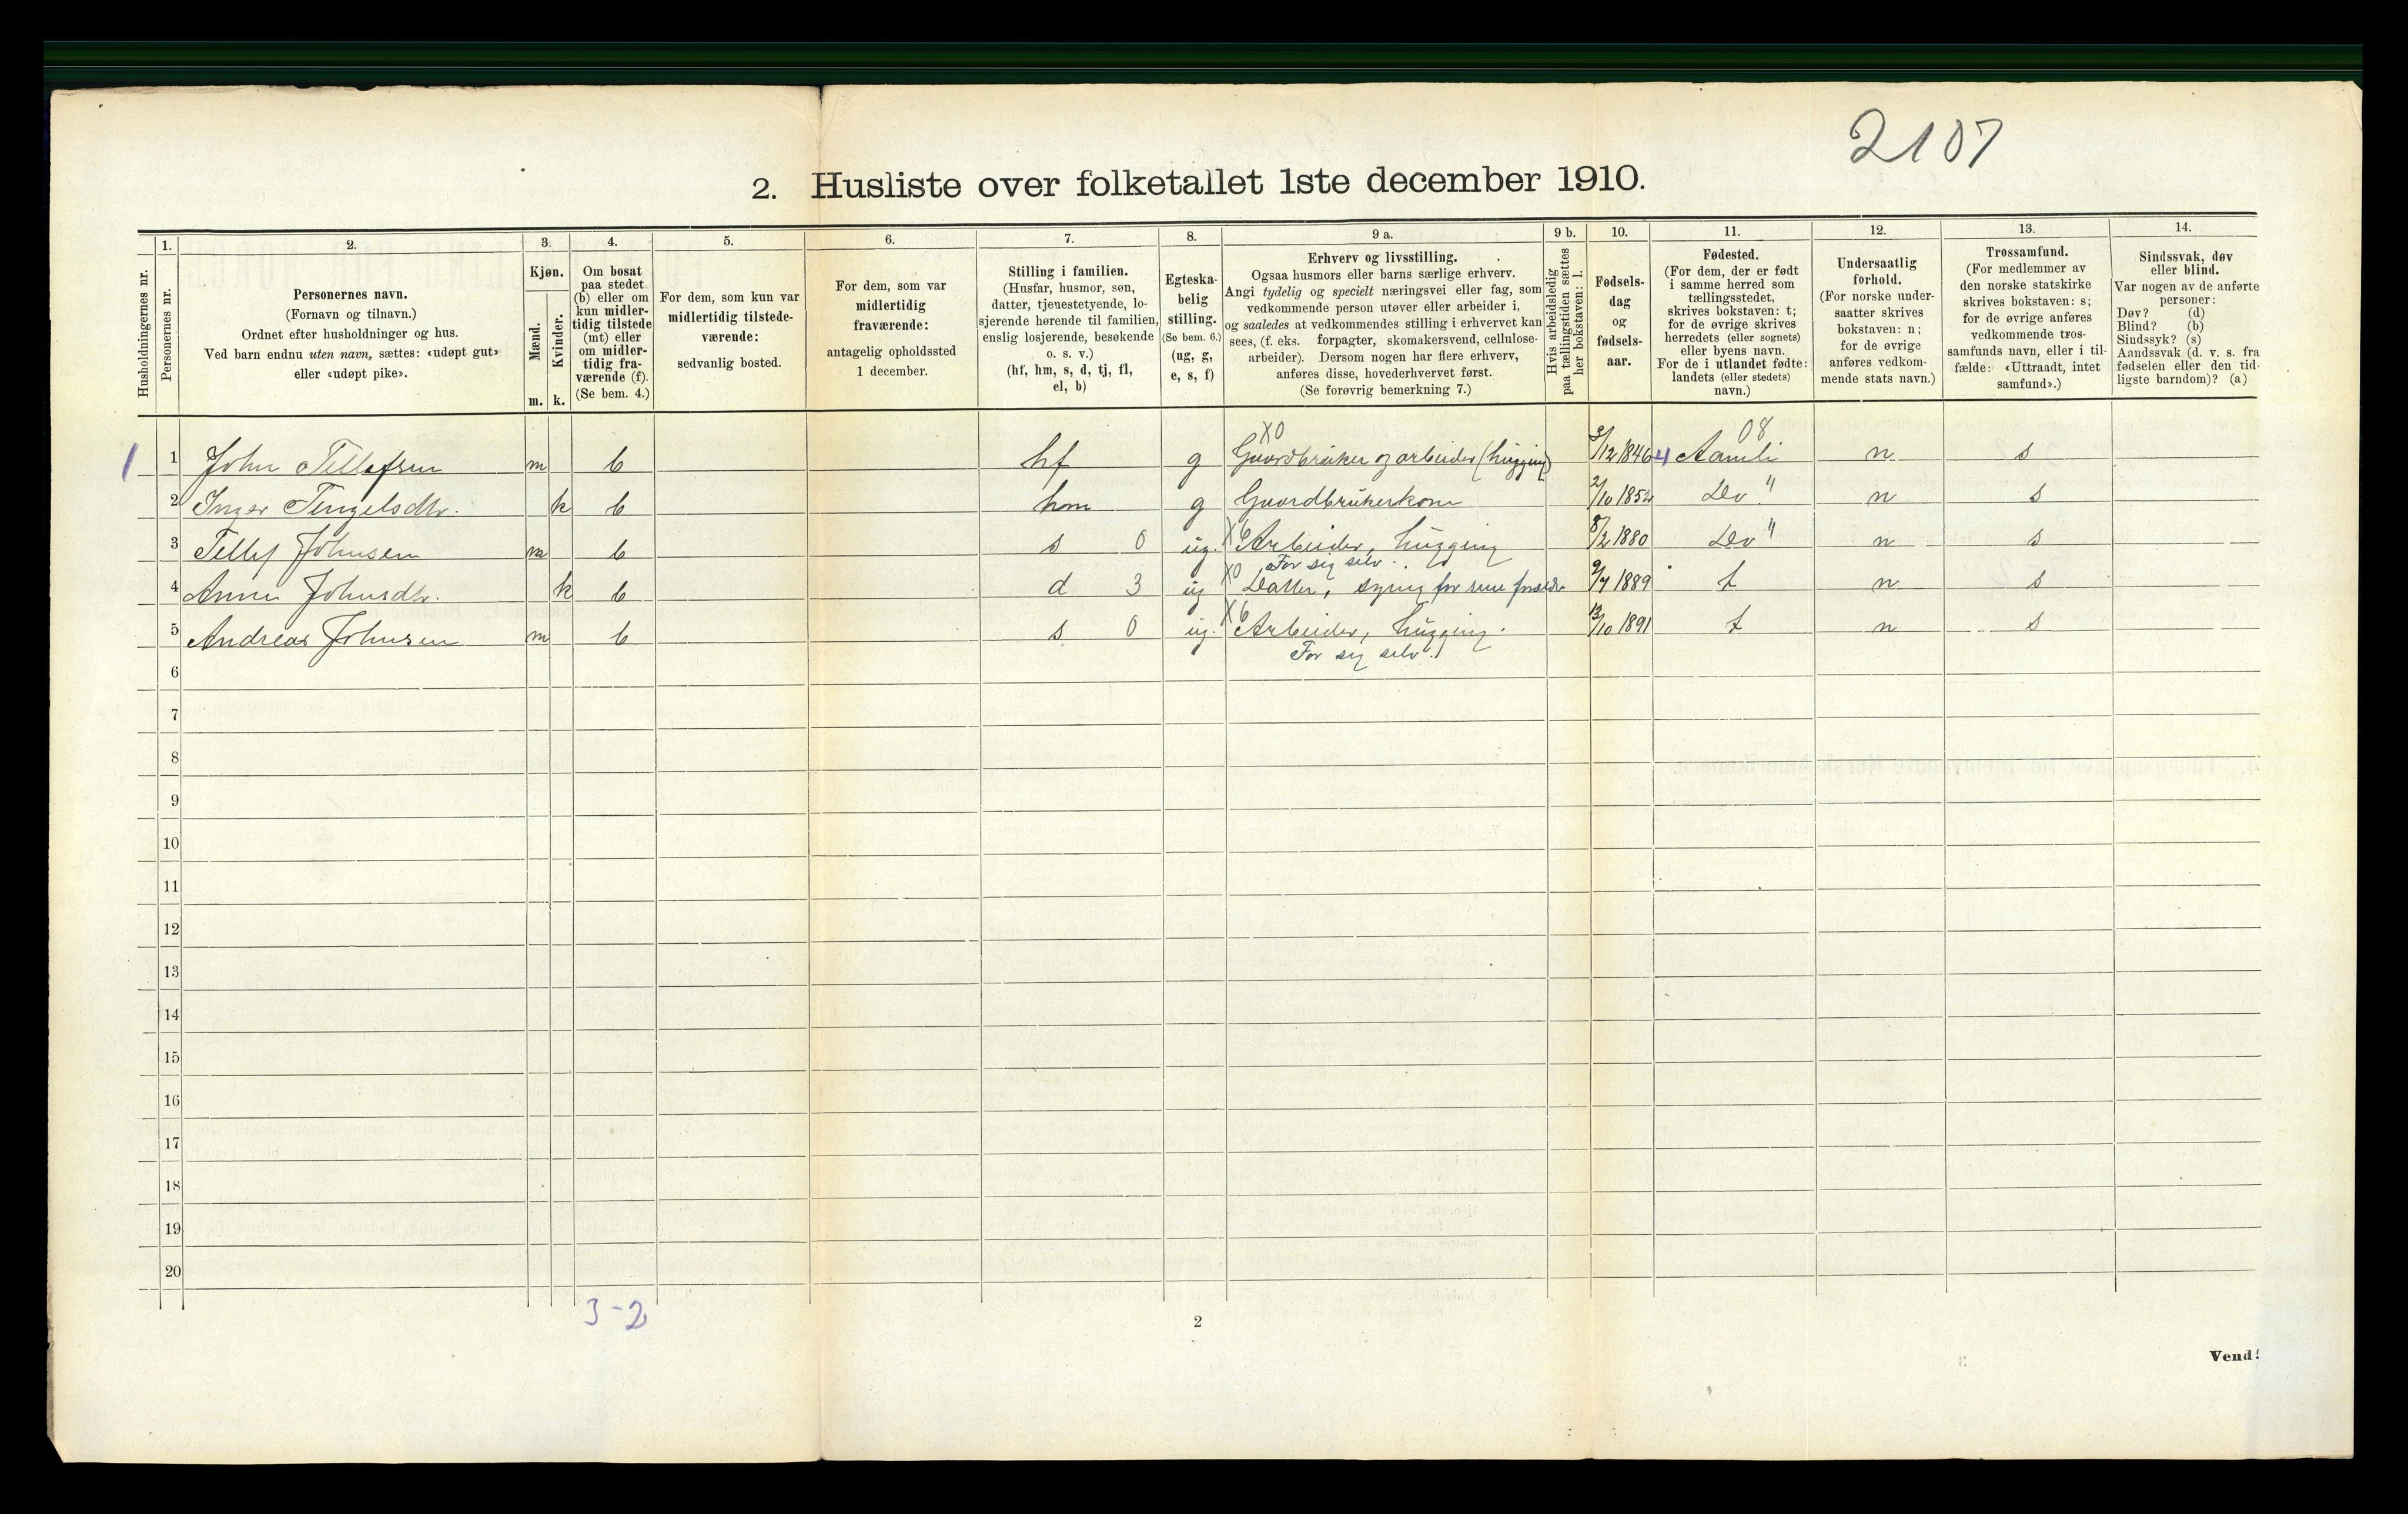 2107
2. Husliste over folketallet 1ste december 1910.
Husholdningernes nr.
1.
Personernes nr.
2.
Personernes navn.
(Fornavn og tilnavn.)
Ordnet efter husholdninger og hus.
Ved barn endnu uten navn, sættes: «udøpt gut»
eller «udøpt pike».
3.
Kjøn.
Mænd.
Kvinder.
m. k.
4.
Om bosat
paa stedet
(b) eller om
kun midler-
tidig tilstede
(mt) eller
om midler-
tidig fra-
værende (f).
(Se bem. 4.)
5.
For dem, som kun var
midlertidig tilstede-
værende:
sedvanlig bosted.
6.
For dem, som var
midlertidig
fraværende:
antagelig opholdssted
1 december.
7.
Stilling i familien.
(Husfar, husmor, søn,
datter, tjenestetyende, lo-
sjerende hørende til familien,
enslig losjerende, besøkende
o. s. v.)
(hf, hm, s, d, tj, fl,
el, b)
8.
Egteska-
belig
stilling.
(Se bem. 6.)
(ug, g,
e, s, f)
9 a.
Erhverv og livsstilling.
Ogsaa husmors eller barns særlige erhverv.
Angi tydelig og specielt næringsvei eller fag, som
vedkommende person utøver eller arbeider i,
og saaledes at vedkommendes stilling i erhvervet kan
sees, (f. eks. forpagter, skomakersvend, cellulose-
arbeider). Dersom nogen har flere erhverv,
anføres disse, hovederhvervet først.
(Se forøvrig bemerkning 7.)
9 b.
Hvis arbeidsledig
paa tællingstiden sættes
her bokstaven: l.
10.
Fødsels-
dag
og
fødsels-
aar.
11.
Fødested.
(For dem, der er født
i samme herred som
tællingsstedet,
skrives bokstaven: t;
for de øvrige skrives
herredets (eller sognets)
eller byens navn.
For de i utlandet fødte:
landets (eller stedets)
navn.)
12.
Undersaatlig
forhold.
(For norske under-
saatter skrives
bokstaven: n;
for de øvrige
anføres vedkom-
mende stats navn.)
13.
Trossamfund.
(For medlemmer av
den norske statskirke
skrives bokstaven: s;
for de øvrige anføres
vedkommende tros-
samfunds navn, eller i til-
fælde: «Uttraadt, intet
samfund».)
14.
Sindssvak, døv
eller blind.
Var nogen av de anførte
personer:
Døv? (d)
Blind? (b)
Sindssyk? (s)
Aandssvak (d. v. s. fra
fødselen eller den tid-
ligste barndom)? (a)
X0 08
1 1 John Tellefsen m b hf g Gaardbruker og arbeider (hugging) 3/12 1846 4 Aamli n s
2 Inger Tengelsdtr. k b hm g Gaardbrukerkone 2/10 1852 Do " n s
3 Tellef Johnsen m b s 0 ug. X6 Arbeider, hugging 8/2 1880 Do " n s
For sig selv.
4 Anne Johnsdtr. k b d 3 ug X0 Datter, sying for sine forældre 9/7 1889 t n s
5 Andreas Johnsen m b s 0 ug. X6 Arbeider, hugging. 13/10 1891 t n s
For sig selv.
6
7
8
9
10
11
12
13
14
15
16
17
18
19
20
3-2
2
Vend!